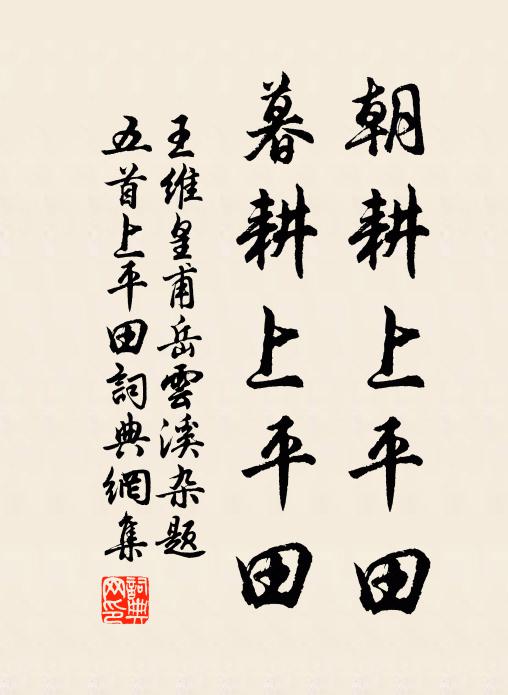 朝耕上平田
暮耕上平田
王維皇甫岳雲溪杂题
五首上平田詞典網集
詞典網印